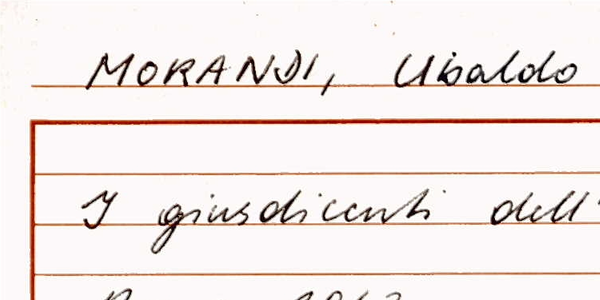 MORANDI, Ubaldo
I giusdicenti dell'